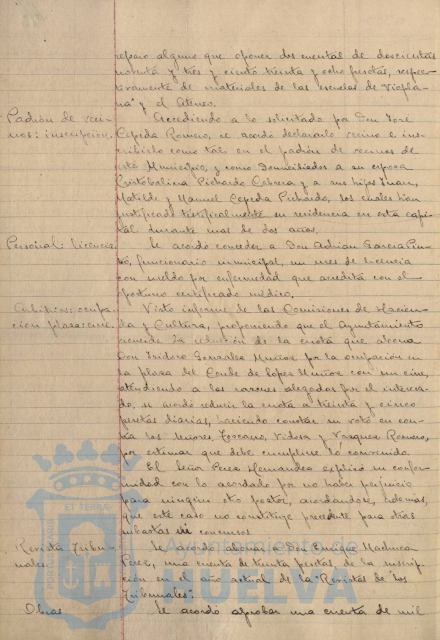 reparo alguno que oponer dos cuentas de doscientas
noventa y tres y ciento treinta y ocho pesetas, respec-
tivamente de materiales de las escuelas de Viapla-
na y el Ateneo.
Padrón de veci-
nos: inscripción.
Accediendo a lo solicitado por Don José
Cepeda Romero, se acordó declararlo vecino e ins-
cribirlo como tal en el padrón de vecinos de
este Municipio, y como domiciliados a su esposa
Cristobalina Pichardo Cabrera y a sus hijos Juan,
Matilde y Manuel Cepeda Pichardo, los cuales han
justificado testificalmente su residencia en esta capi-
tal durante mas de dos años.
Personal: licencia.
Se acordó conceder a Don Adrian Garcia Pin-
to, funcionario municipal, un mes de licencia
con sueldo por enfermedad que acredita con el
oportuno certificado médico.
Arbitrios: ocupa-
cion plaza: cine.
Visto informe de las Comisiones de Hacien-
da y Cultura, proponiendo que el Ayuntamiento
acuerde la reducción de la cuota que abona
Don Isidoro Gonzalez Muñoz por la ocupación en
la plaza del Conde de López Muñoz con un cine,
atendiendo a las razones alegadas por el interesa-
do, se acordó reducir la cuota a treinta y cinco
pesetas diarias, haciendo constar su voto en con-
tra los señores Toscano, Vidosa y Vazquez Romero,
por estimar que debe cumplirse lo convenido.
El Señor Perez Hernandez explicó su confor-
midad con lo acordado por no haber perjuicio
para ningún otro postor, acordandose, además,
que este caso no constituye precedente para otras
subastas ni concursos.
Revista Tribu-
nales
Se acordó abonar a Don Enrique Machuca
Perez, una cuenta de treinta pesetas, de la suscrip-
ción en el año actual de la "Revista de los
Tribunales".
Obras
Se acordó aprobar una cuenta de mil
Ayuntamiento de
HUELVA